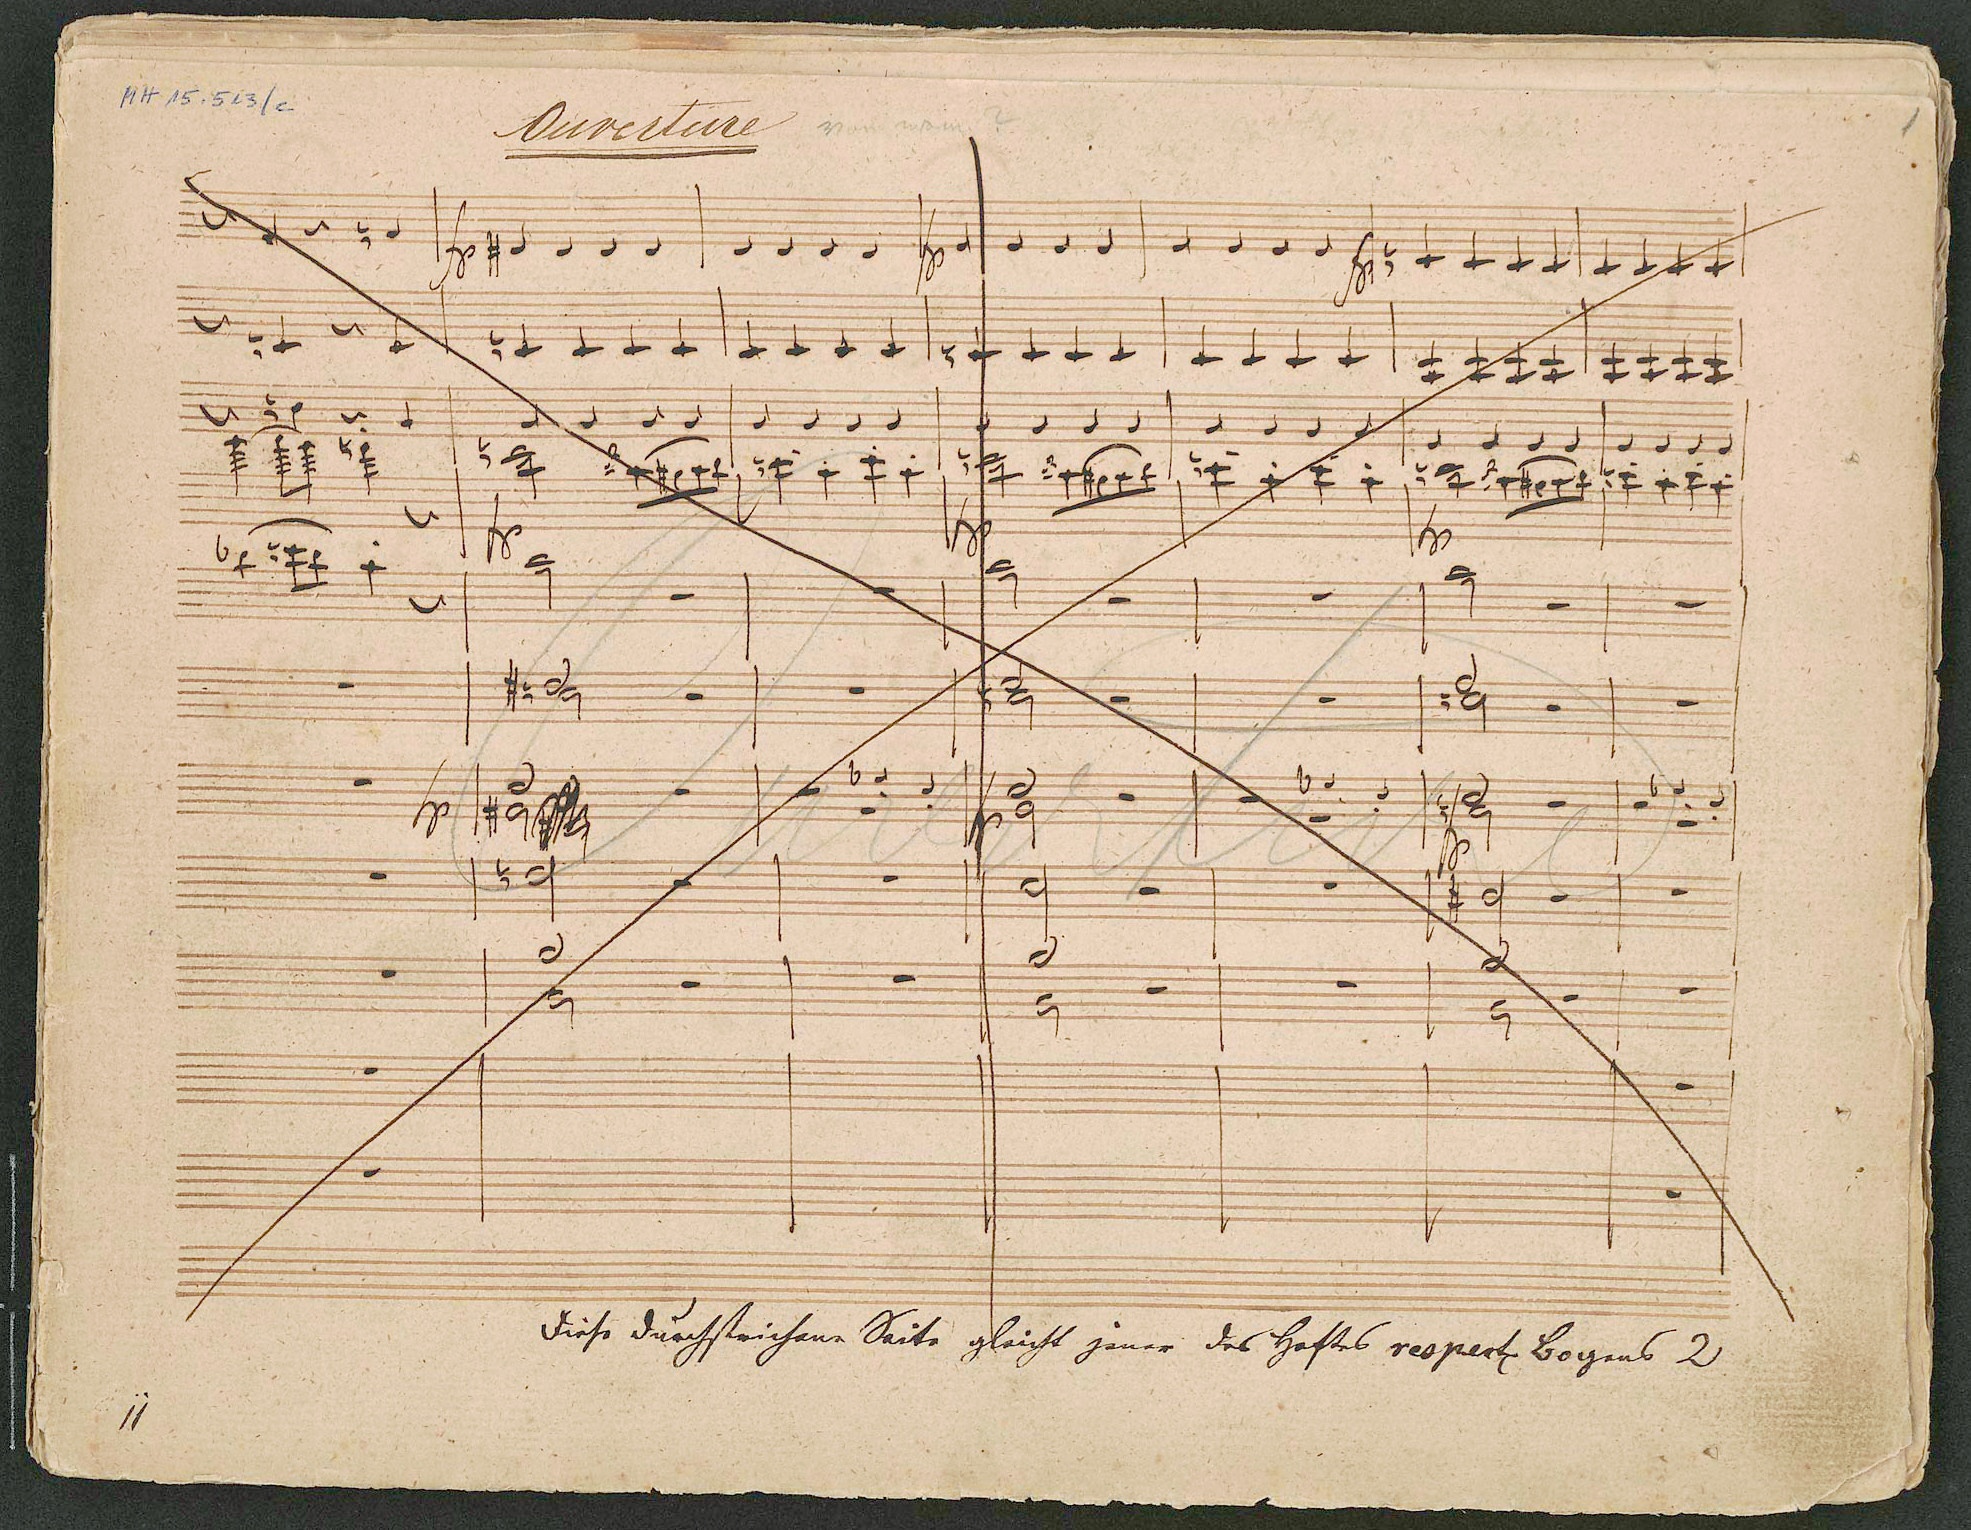 MH 15.513/c
Ouverture
von wem ?
1
Ouverture
Diese durchstrichene Seite gleicht jener des Heftes respect. Bogens 2
ii